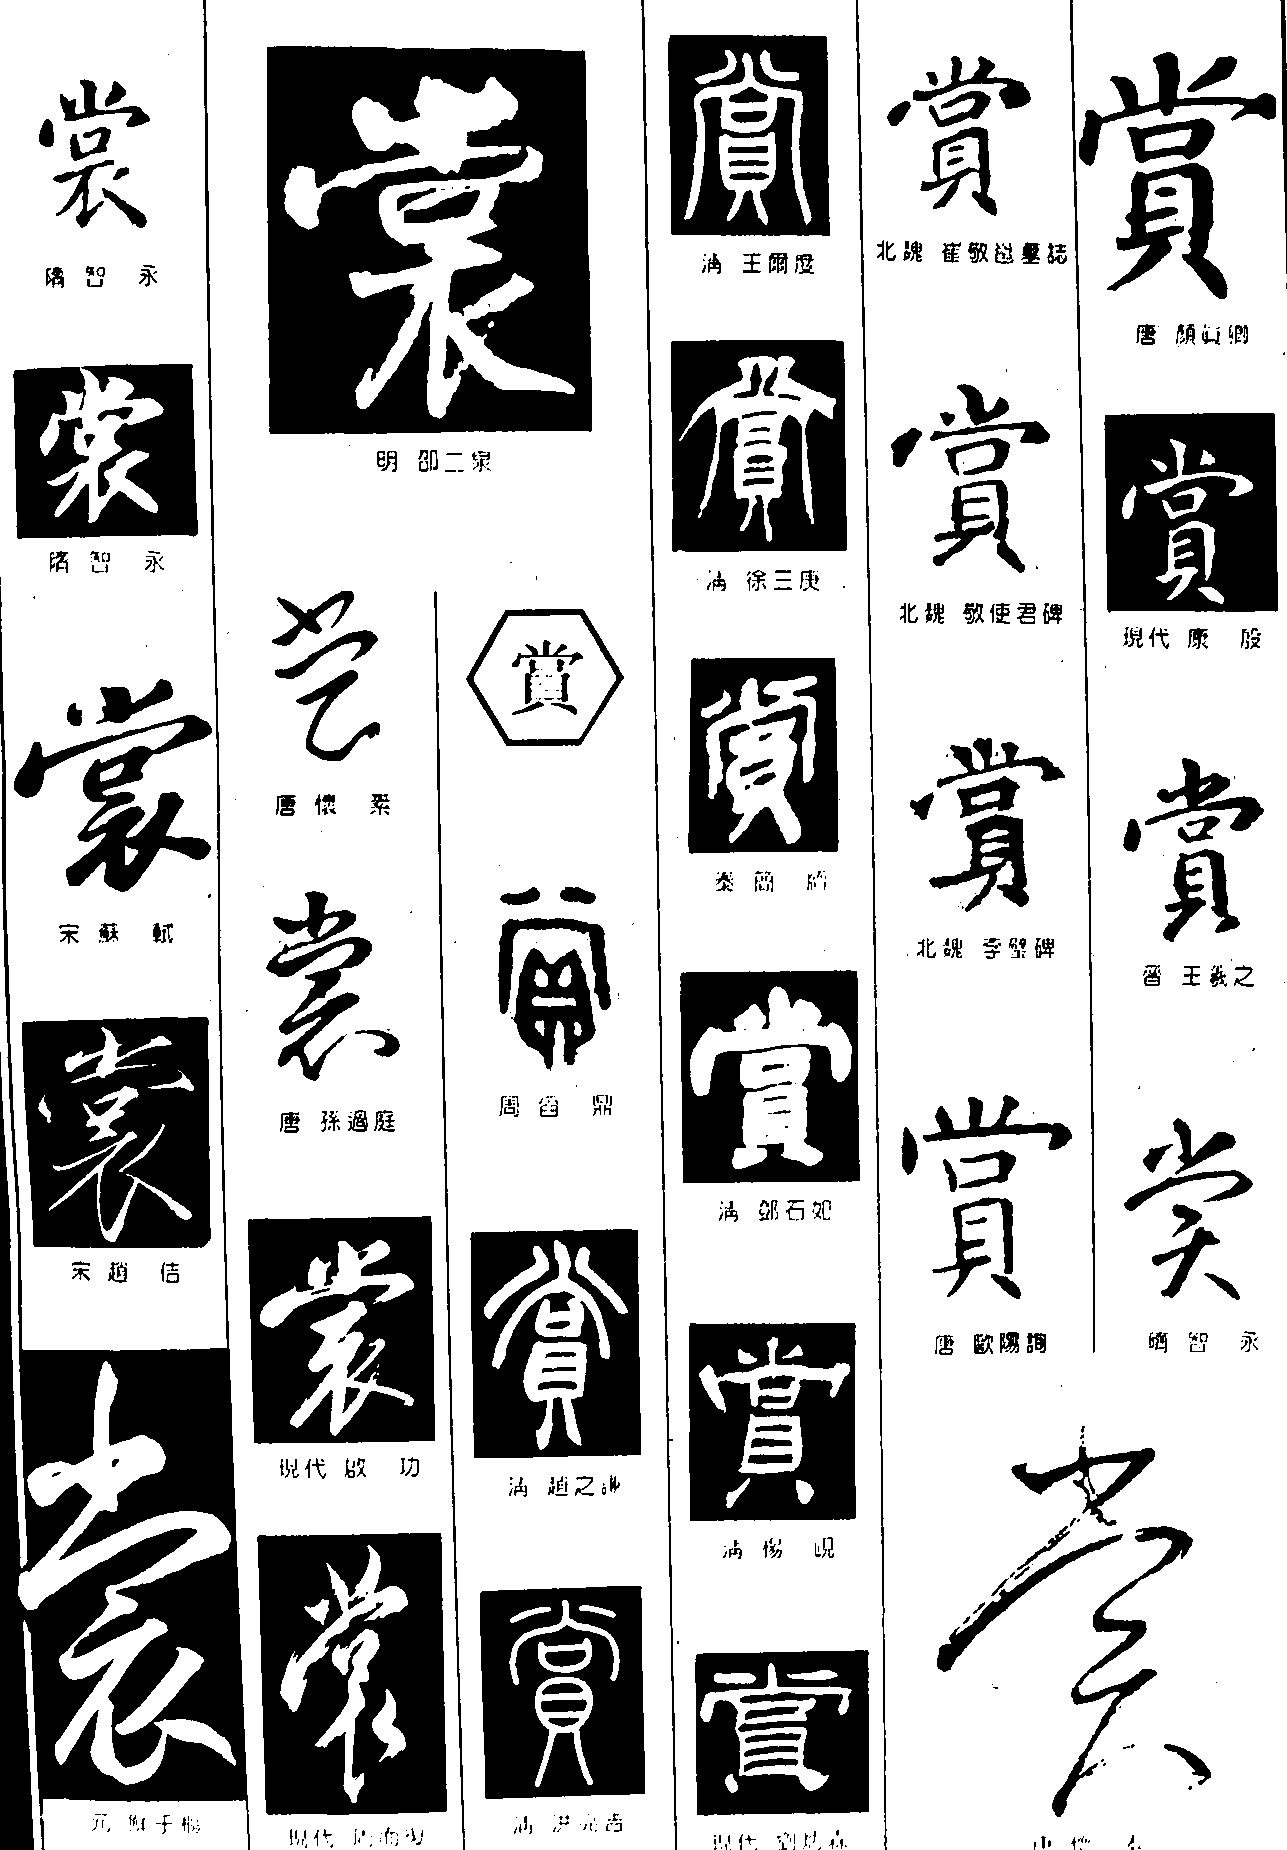 裳
隋 智 永
裳
隋 智 永
裳
宋 蘇 軾
裳
宋 趙 佶
裳
元 鮮于樞
裳
明 邵二泉
裳
唐 懷 素
裳
唐 孫過庭
裳
現代 啟 功
裳
賞
賞
周 曶 鼎
賞
清 趙之謙
賞
清 洪亮吉
賞
清 王爾度
賞
清 徐三庚
賞
秦 簡 牘
賞
清 鄧石如
賞
清 楊 峴
賞
賞
北魏 崔敬邕墓誌
賞
北魏 敬使君碑
賞
北魏 李璧碑
賞
唐 歐陽詢
賞
唐 顏真卿
賞
現代 康 殷
賞
晉 王羲之
賞
隋 智 永
賞
唐 懷 素